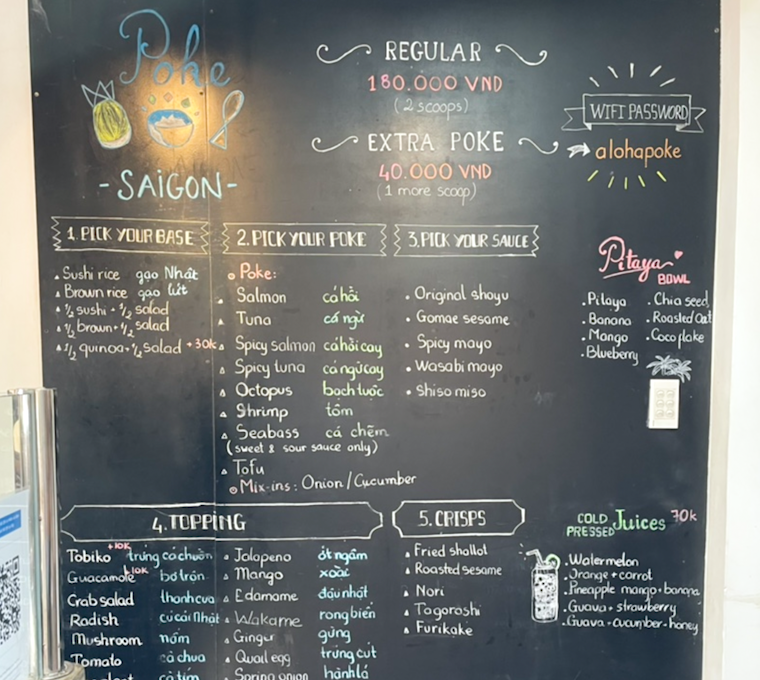 Poke
-SAIGON-
REGULAR
180.000 VND
(2 scoops)
EXTRA POKE
40.000 VND
(1 more scoop)
WIFI PASSWORD
alohapoke
1. PICK YOUR BASE
Sushi rice gạo Nhật
Brown rice gạo lứt
1/2 sushi + 1/2 salad
1/2 brown + 1/2 salad
1/2 quinoa + 1/2 salad +30k
2. PICK YOUR POKE
Poke:
Salmon cá hồi
Tuna cá ngừ
Spicy salmon cá hồi cay
Spicy tuna cá ngừ cay
Octopus bạch tuộc
Shrimp tôm
Seabass cá chẽm
(sweet & sour sauce only)
Tofu
Mix-ins: Onion/Cucumber
3. PICK YOUR SAUCE
Original shoyu
Gomae sesame
Spicy mayo
Wasabi mayo
Shiso miso
Pitaya
BOWL
Pitaya
Banana
Mango
Blueberry
Chia seed
Roasted Oat
Coco flake
4. TOPPING
Tobiko +10K trứng cá chuồn
Guacamole +10K bơ trộn
Crab salad thanh cua
Radish củ cải Nhật
Mushroom nấm
Tomato cà chua
cà tím
Jalapeno ớt ngâm
Mango xoài
Edamame đậu nhật
Wakame rong biển
Ginger gừng
Quail egg trứng cút
Spring onion hành lá
5. CRISPS
Fried shallot
Roasted sesame
Nori
Togarashi
Furikake
COLD PRESSED Juices 70k
Watermelon
Orange + carrot
Pineapple mango + banana
Guava + strawberry
Guava + cucumber + honey